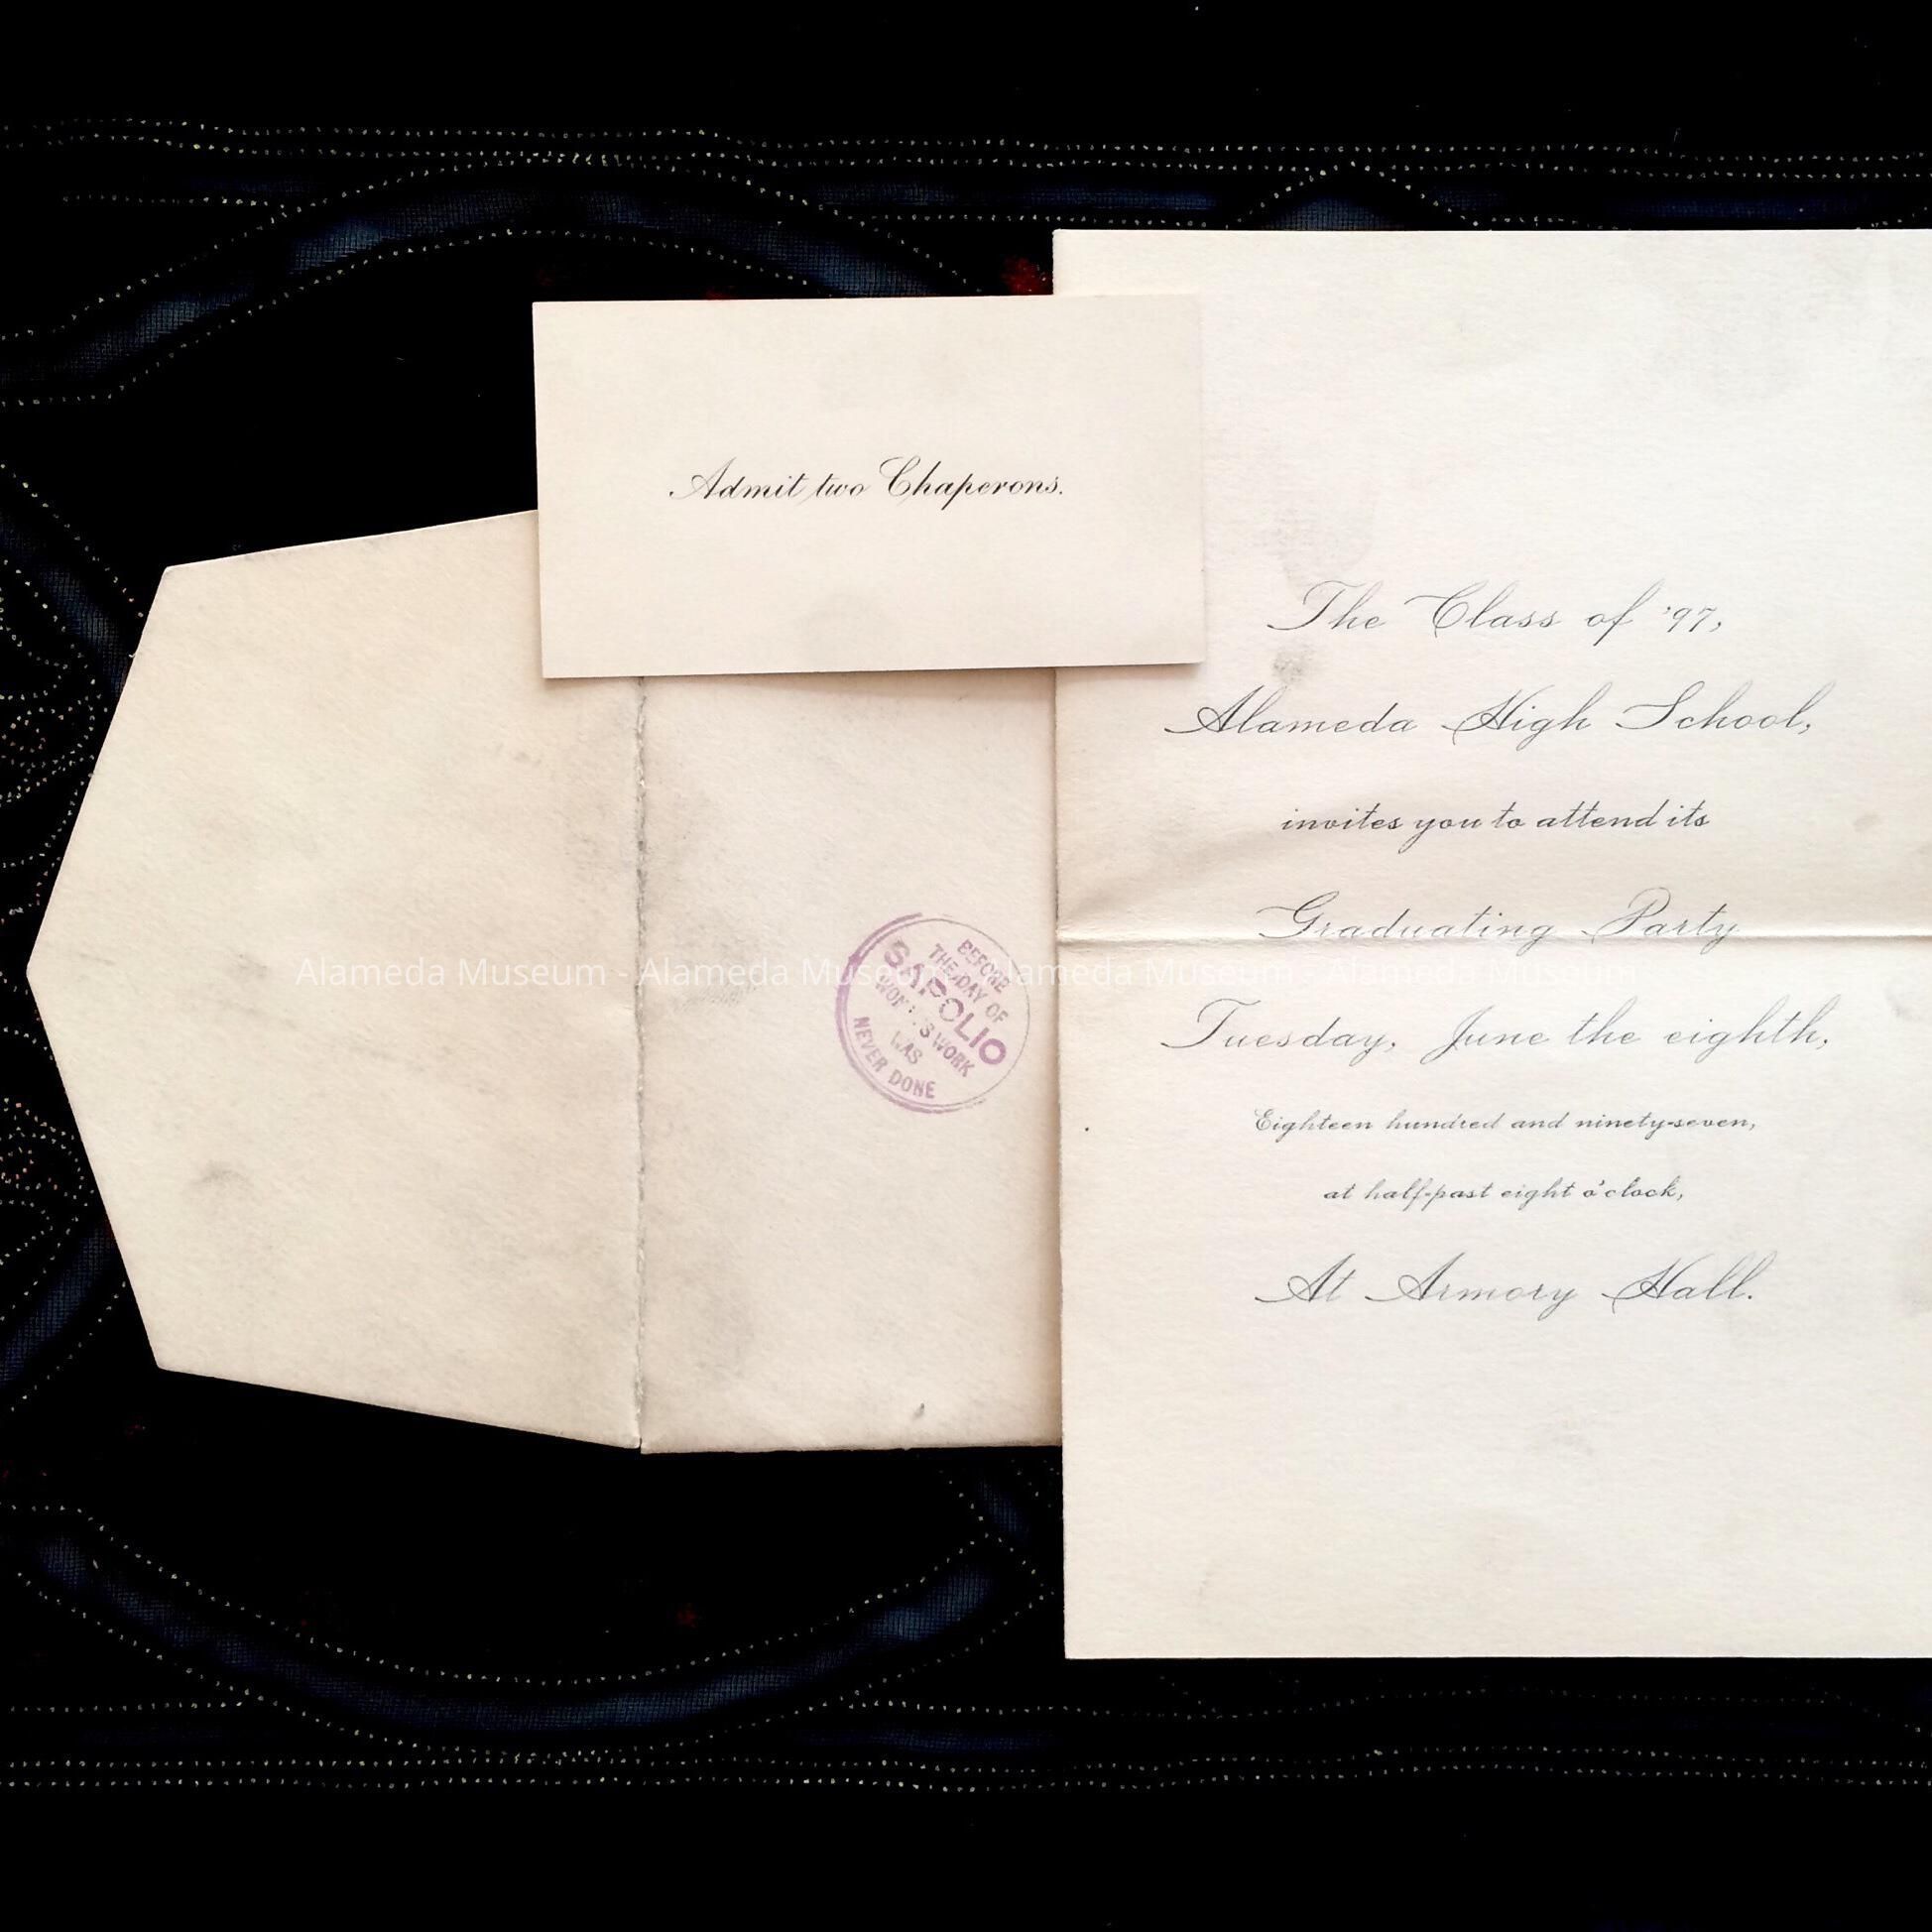 Admit two Chaperons.
The Class of '97,
Alameda High School,
invites you to attend its
Graduating Party
Tuesday, June the eighth,
Eighteen hundred and ninety-seven,
at half-past eight o'clock,
At Armory Hall.
BEFORE
THE DAY OF
SAPOLIO
WORK
WAS
NEVER DONE
Alameda Museum - Alameda Museum - Alameda Museum - Alameda Museum